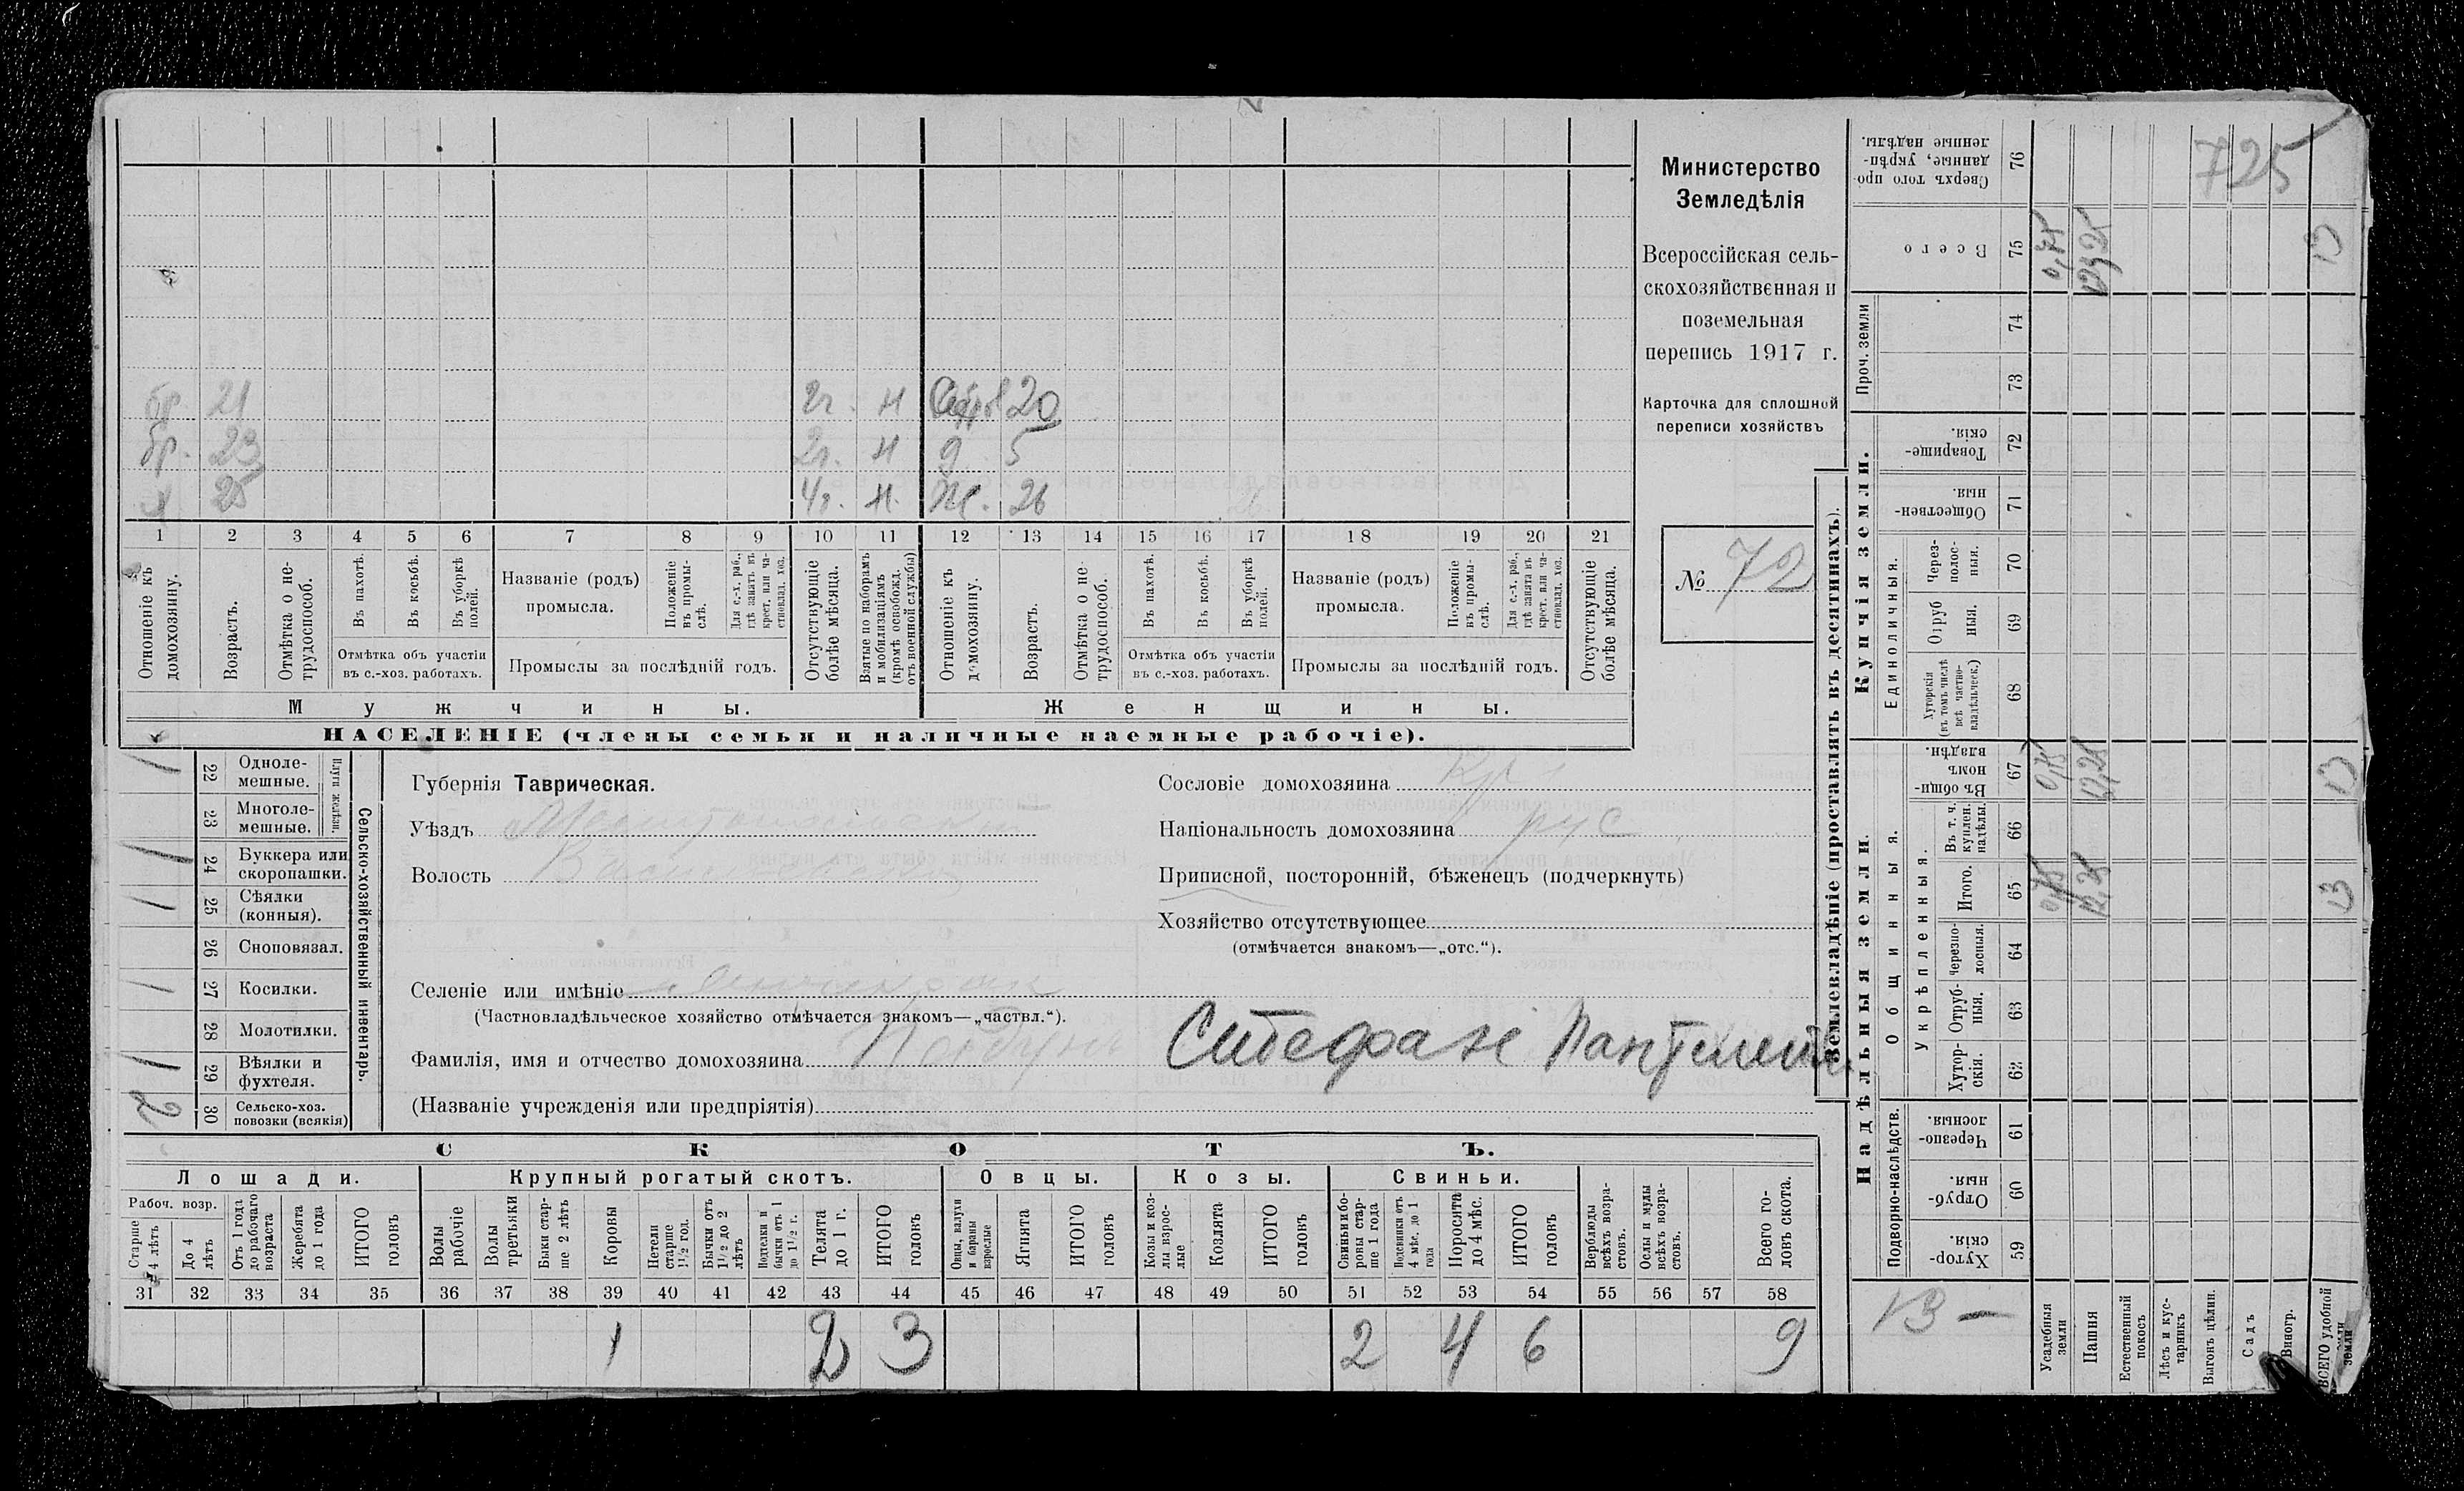 725
бр. 21 2г. н 20
бр. 23 2г. н д. 5
х 25 4г. н. ж. 26
1 2 3 4 5 6 7 8 9 10 11 12 13 14 15 16 17 18 19 20 21
Отношеніе къ домохозяину.
Возрастъ.
Отмѣтка о нетрудоспособ.
Въ пахотѣ.
Въ косьбѣ.
Въ уборкѣ полей.
Отмѣтка объ участіи въ с.-хоз. работахъ.
Названіе (родъ) промысла.
Положеніе въ промыслѣ.
Для с.-х. раб., гдѣ занятъ въ крест. или частновлад. хоз.
Промыслы за послѣдній годъ.
Отсутствующіе болѣе мѣсяца.
Взятые по наборамъ и мобилизаціямъ (кромѣ освобожд. отъ военной службы)
Отношеніе къ домохозяину.
Возрастъ.
Отмѣтка о нетрудоспособ.
Въ пахотѣ.
Въ косьбѣ.
Въ уборкѣ полей.
Отмѣтка объ участіи въ с.-хоз. работахъ.
Названіе (родъ) промысла.
Положеніе въ промыслѣ.
Для с.-х. раб., гдѣ занята въ крест. или частновлад. хоз.
Промыслы за послѣдній годъ.
Отсутствующіе болѣе мѣсяца.
Мужчины.
Женщины.
НАСЕЛЕНІЕ (члены семьи и наличные наемные рабочіе).
Министерство
Земледѣлія
Всероссійская сель-
скохозяйственная и
поземельная
перепись 1917 г.
Карточка для сплошной
переписи хозяйствъ
№ 72
Сельско-хозяйственный инвентарь.
Плуги желѣзн.
1 22 Одноле-мешные.
23 Многоле-мешные.
1 24 Буккера или скоропашки.
1 25 Сѣялки (конныя).
26 Сноповязал.
1 27 Косилки.
28 Молотилки.
1 29 Вѣялки и фухтеля.
2 30 Сельско-хоз. повозки (всякія)
Губернія Таврическая.
Уѣздъ Мелитопольскій
Волость Васильевская
Селеніе или имѣніе
(Частновладѣльческое хозяйство отмѣчается знакомъ—„частвл.“).
Фамилія, имя и отчество домохозяина Стефанъ Пантелеим.
(Названіе учрежденія или предпріятія)
Сословіе домохозяина Кр.
Національность домохозяина рус
Приписной, посторонній, бѣженецъ (подчеркнуть)
Хозяйство отсутствующее
(отмѣчается знакомъ—„отс.“).
СКОТЪ.
Лошади.
Рабоч. возр.
Старше 4 лѣтъ
До 4 лѣтъ
Отъ 1 года до рабочаго возраста
Жеребята до 1 года
ИТОГО головъ
Крупный рогатый скотъ.
Волы рабочіе
Волы третьяки
Быки старше 2 лѣтъ
Коровы
Нетели старше 1½ год.
Бычки отъ 1½ до 2 лѣтъ
Подтелки и бычки отъ 1 до 1½ г.
Телята до 1 г.
ИТОГО головъ
Овцы.
Овцы, валухи и бараны взрослые
Ягнята
ИТОГО головъ
Козы.
Козы и козлы взрослые
Козлята
ИТОГО головъ
Свиньи.
Свиньи и боровы старше 1 года
Подсвинки отъ 4 мѣс. до 1 года
Поросята до 4 мѣс.
ИТОГО головъ
Верблюды всѣхъ возрастовъ.
Ослы и мулы всѣхъ возрастовъ.
Всего головъ скота.
31 32 33 34 35 36 37 38 39 40 41 42 43 44 45 46 47 48 49 50 51 52 53 54 55 56 57 58
1 2 3 2 4 6 9
Землевладѣніе (проставлять въ десятинахъ).
Сверхъ того проданные, укрѣпленные надѣлы. 76
Всего 75 0,75 12,25 13
Проч. земли 74 73
Купчія земли.
Товарищескія. 72
Общественныя. 71
Единоличныя.
Черезполосныя. 70
Отрубныя. 69
Хуторскія (въ томъ числѣ всѣ частновладѣльческ.) 68
Надѣльныя земли.
Общинныя.
Въ общинномъ владѣн. 67 0,75 12,25 13
Укрѣпленныя.
Въ т. ч. куплен. надѣлы. 66
Итого. 65 0,75 12,25 13
Черезполосныя. 64
Отрубныя. 63
Хуторскія. 62
Подворно-наслѣдств.
Черезполосныя. 61
Отрубныя. 60
Хуторскія. 59
13 —
Усадебныя земли
Пашня
Естественный покосъ
Лѣсъ и кустарникъ
Выгонъ цѣлин.
Садъ
Виногр.
ВСЕГО удобной земли